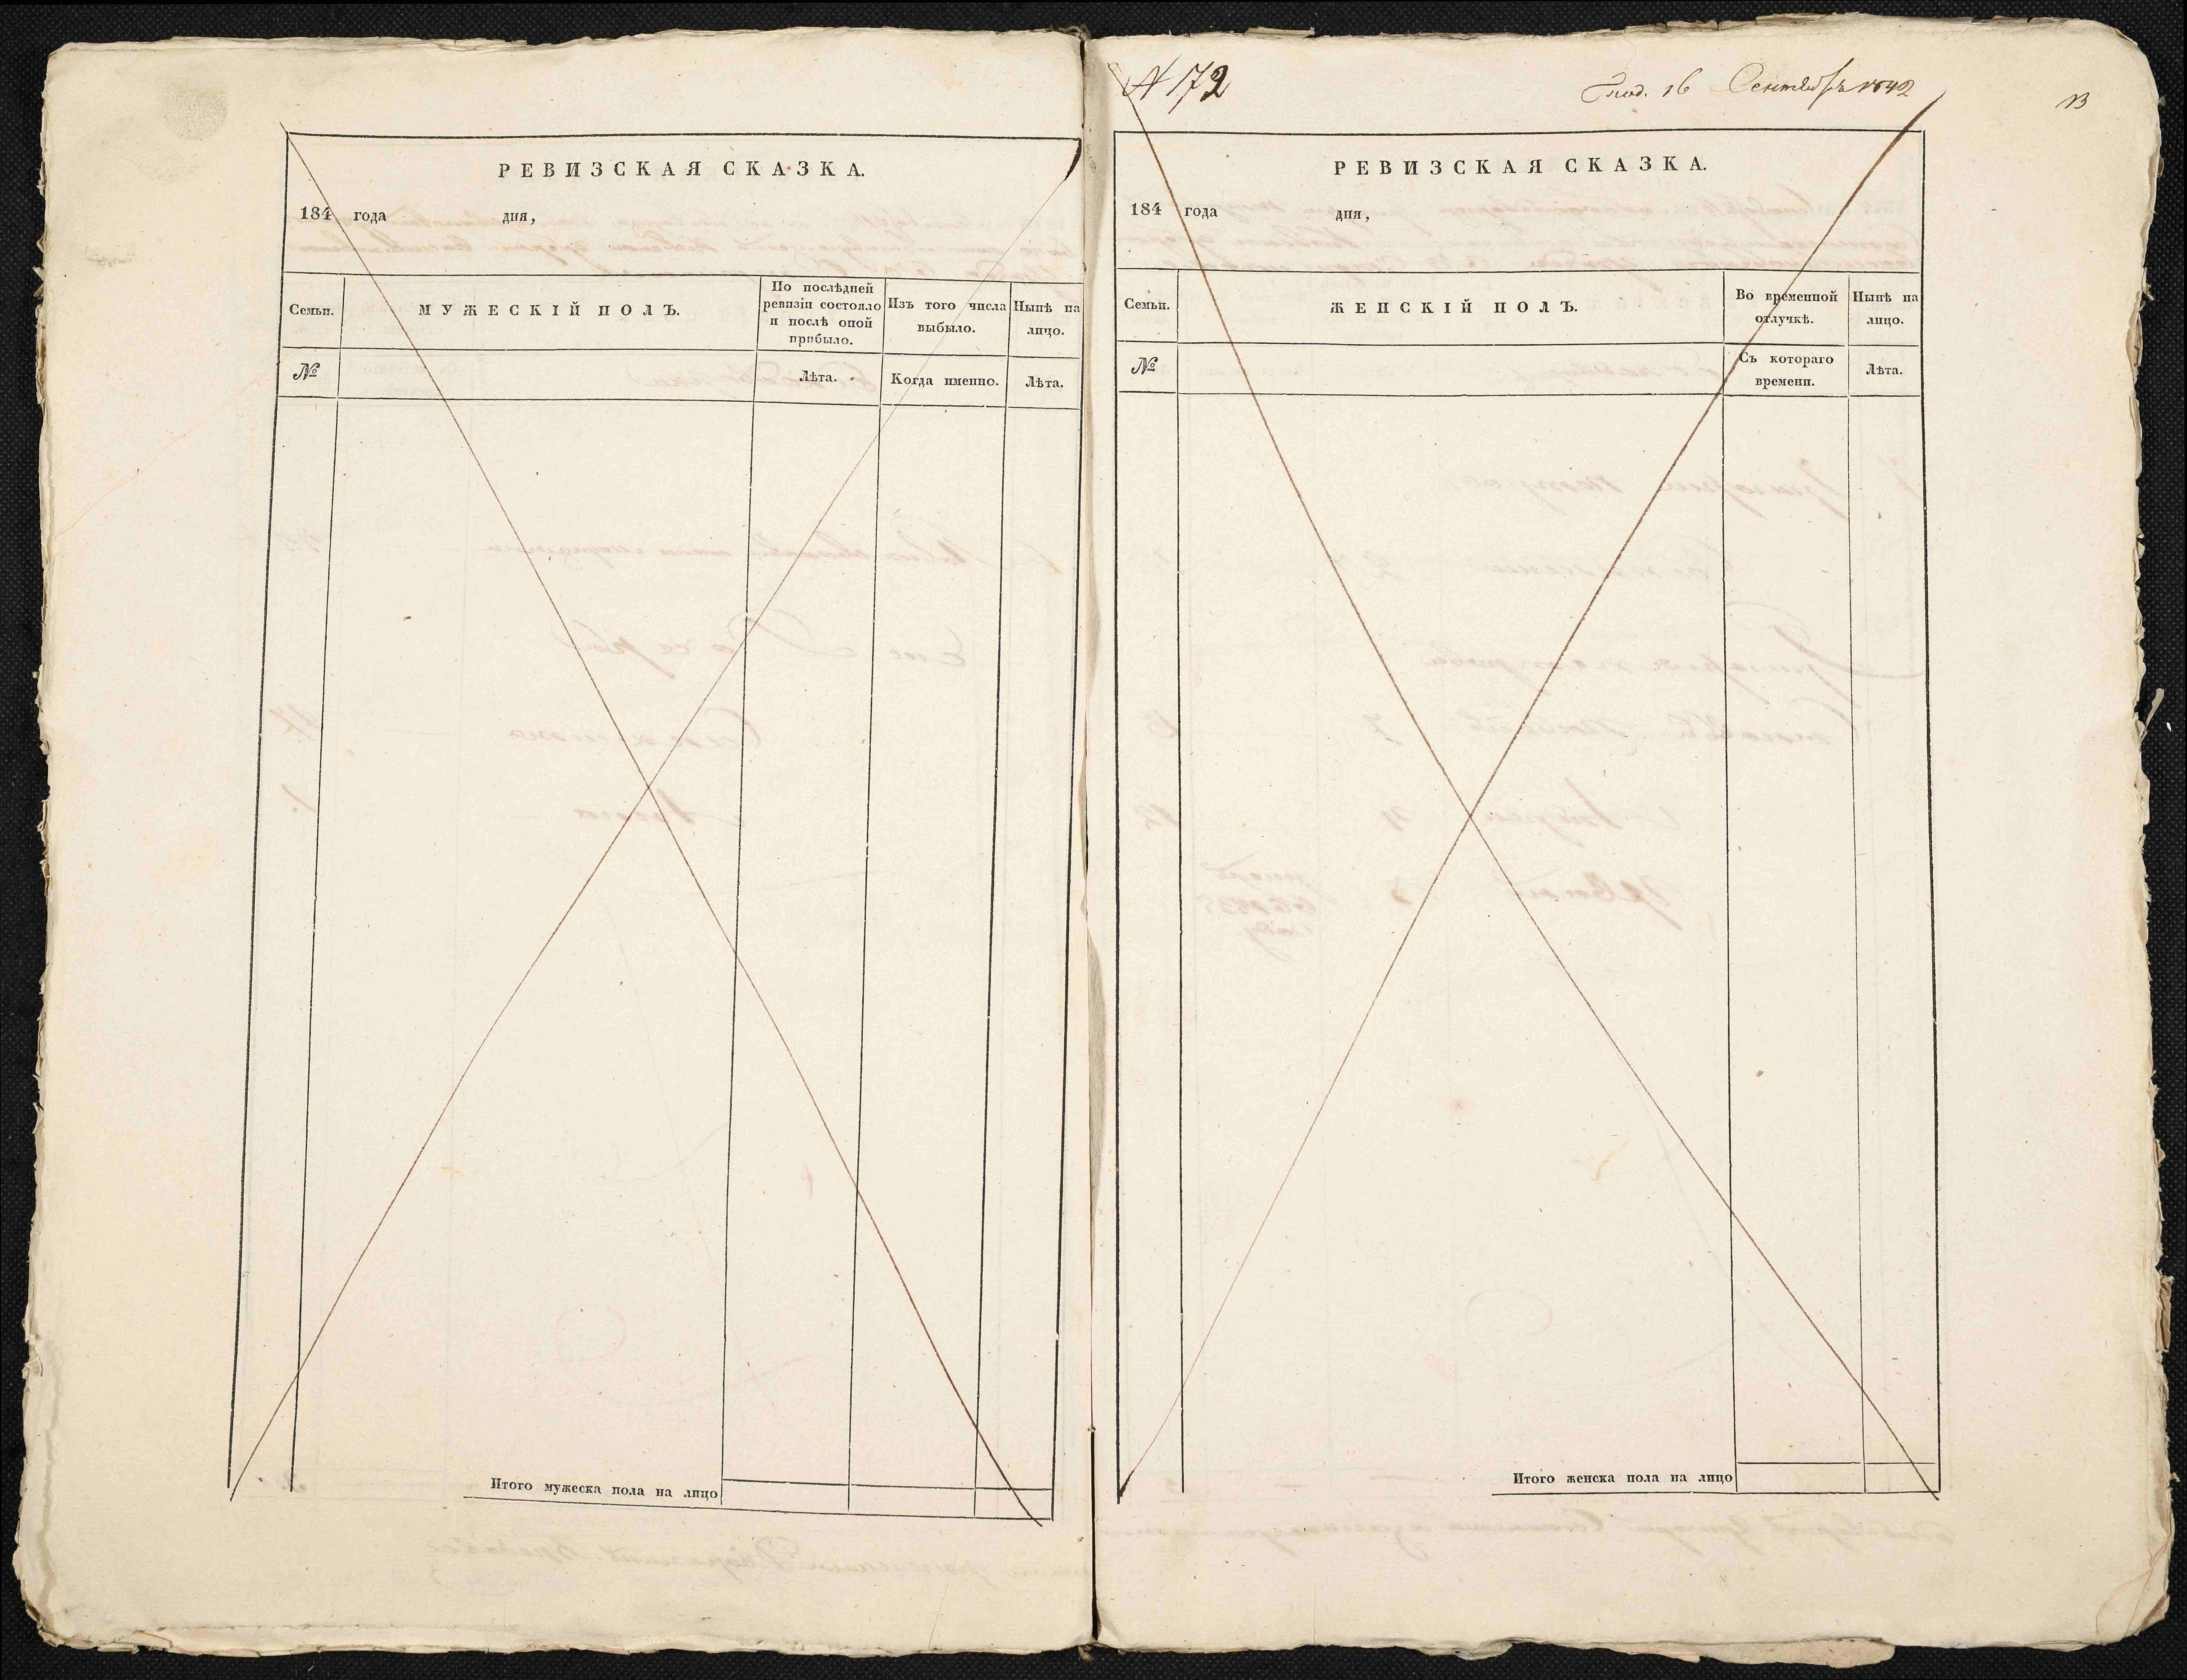 РЕВИЗСКАЯ СКАЗКА.
184 года дня,
Семьи.
МУЖЕСКІЙ ПОЛЪ.
По послѣдней ревизіи состояло и послѣ оной прибыло.
Изъ того числа выбыло.
Нынѣ на лицо.
№
Лѣта.
Когда именно.
Лѣта.
Итого мужеска пола на лицо
N 172
16 Сентября 1842
13
РЕВИЗСКАЯ СКАЗКА.
184 года дня,
Семьи.
ЖЕНСКІЙ ПОЛЪ.
Во временной отлучкѣ.
Нынѣ на лицо.
№
Съ котораго времени.
Лѣта.
Итого женска пола на лицо